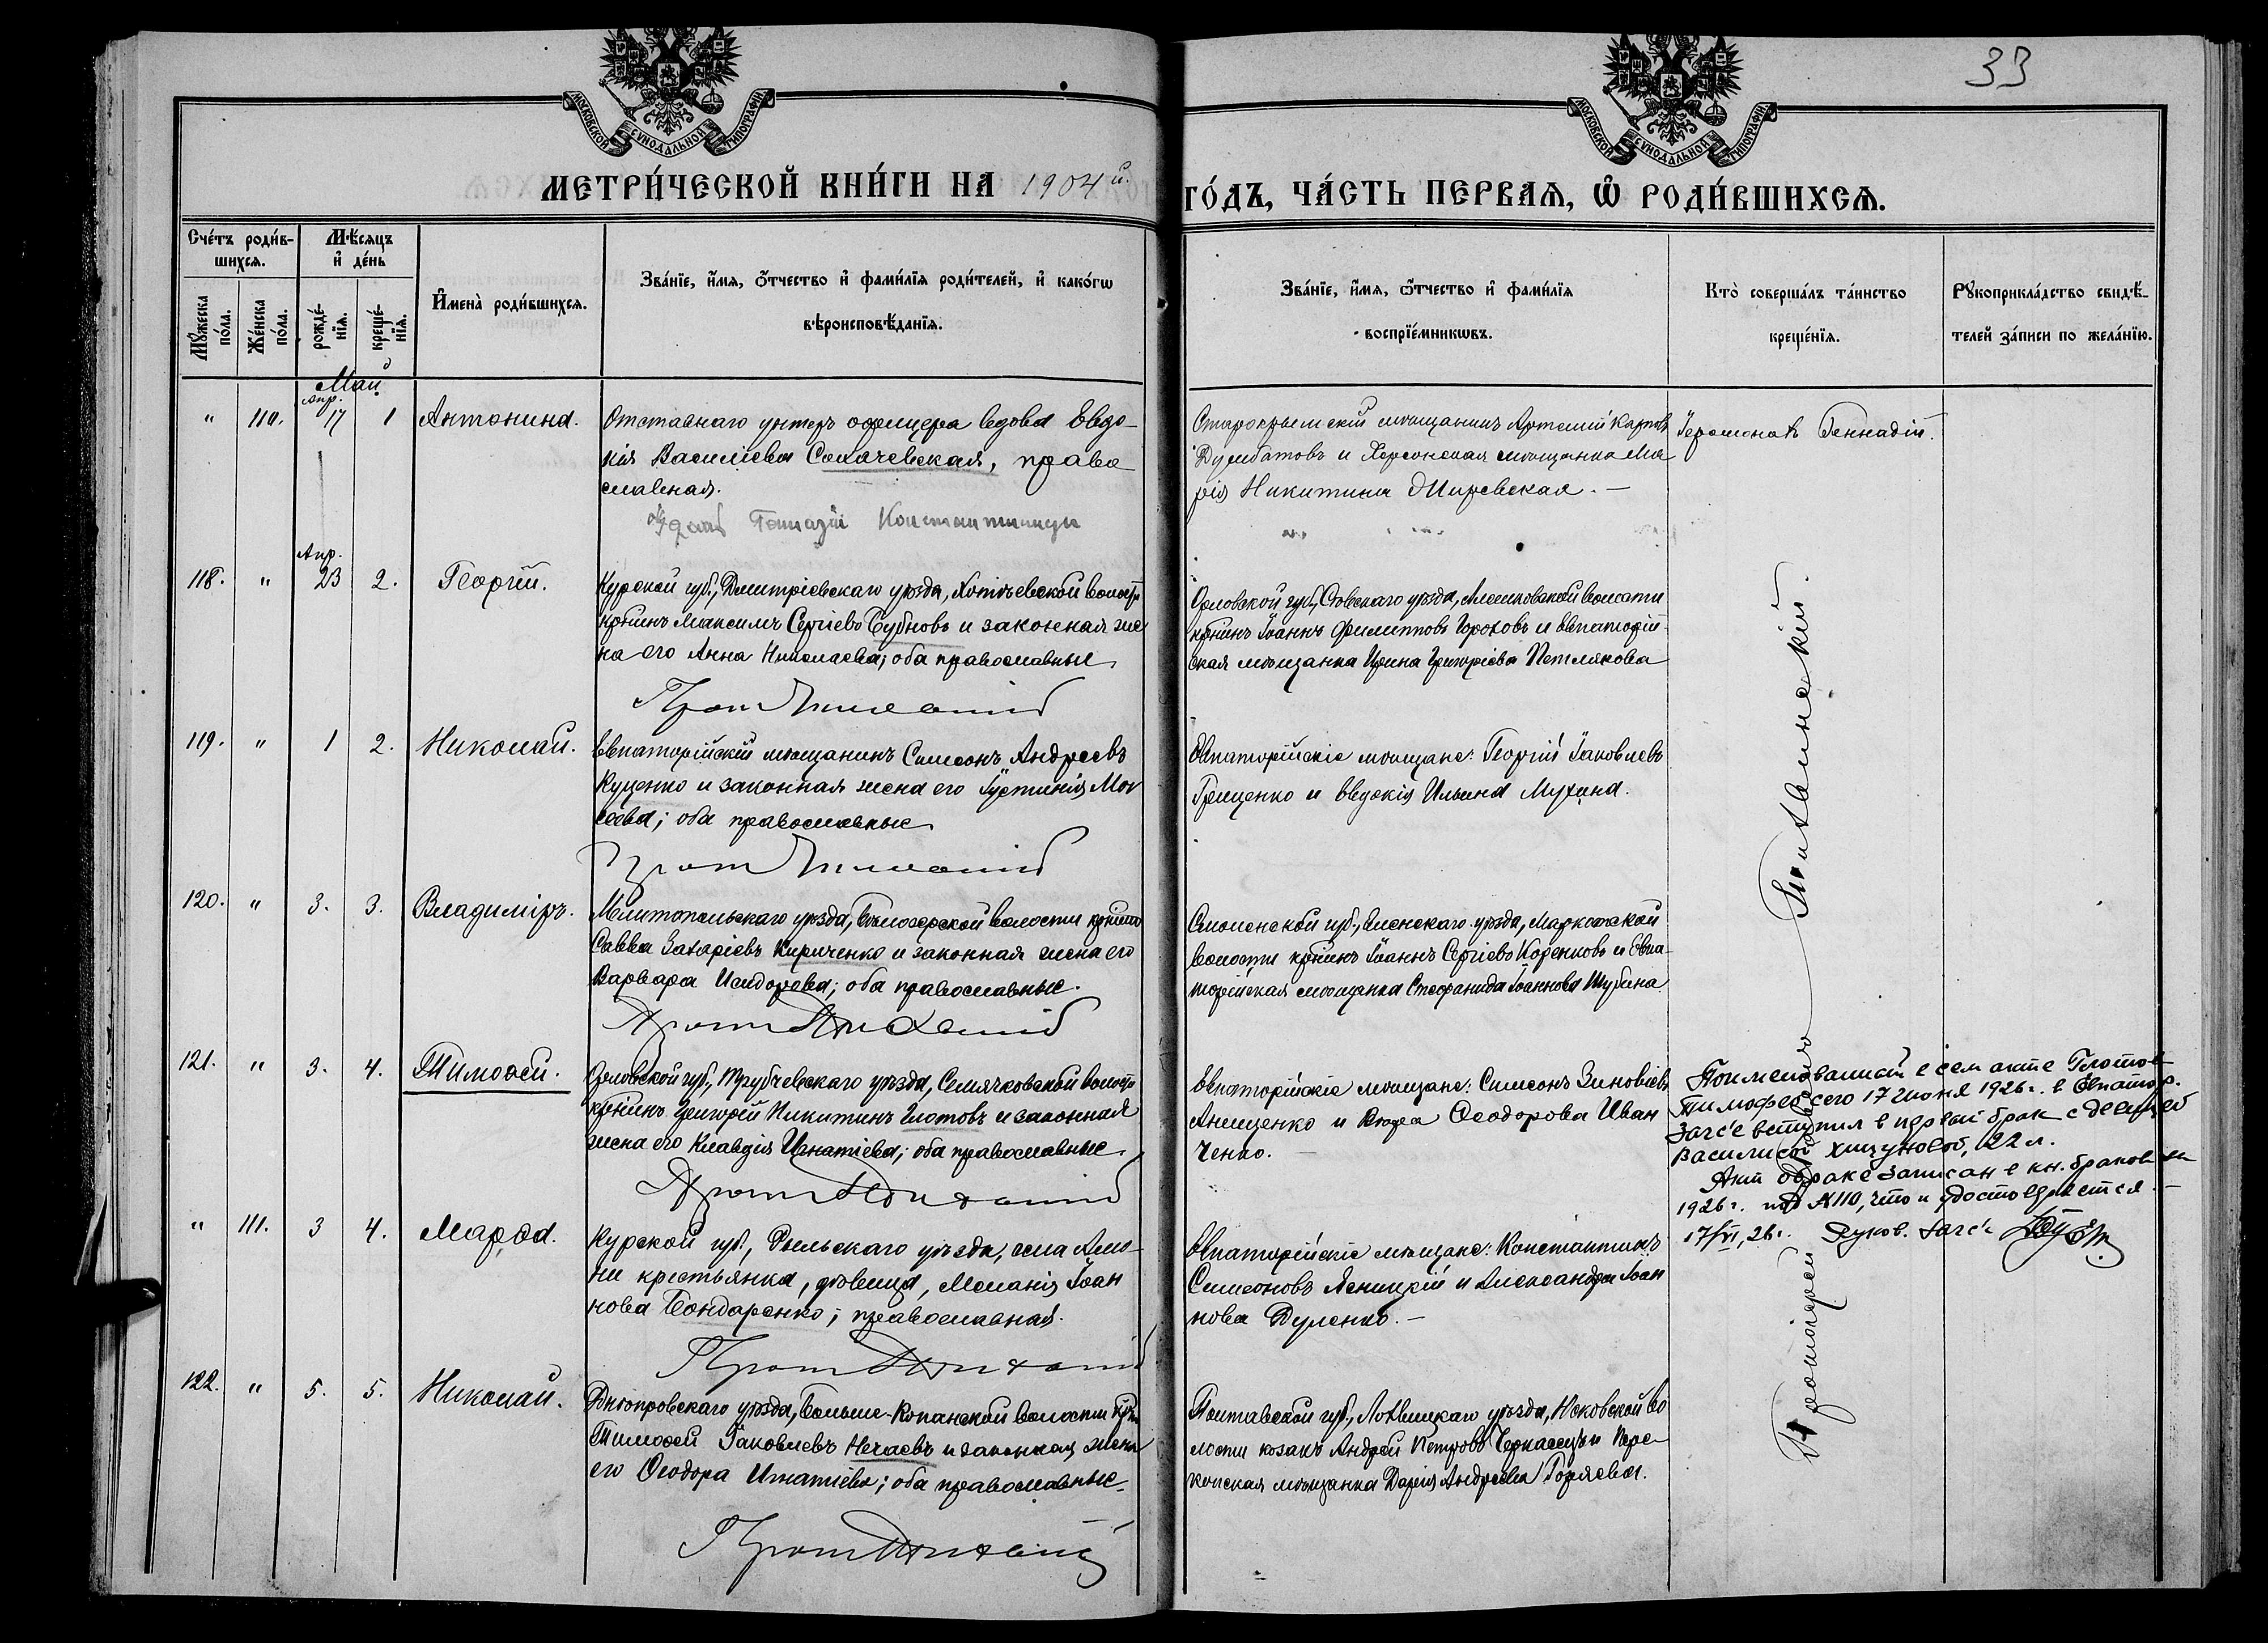 33
МОСКОВСКОЙ СѴНОДАЛЬНОЙ ТИПОГРАФІИ
МОСКОВСКОЙ СѴНОДАЛЬНОЙ ТИПОГРАФІИ
МЕТРИ́ЧЕСКОЙ КНИ́ГИ НА 1904 й.
ГО́ДЪ, ЧА́СТЬ ПЕРВАЯ, Ѡ҆ РОДИ́ВШИХСЯ.
Сче́тъ роди́в-
шихся.
Мꙋ́жеска по́ла.
Же́нска по́ла.
Мѣ́сяцъ
и҆ де́нь
рожде́-
нїя.
креще́-
нїя.
И҆мена̀ роди́вшихся.
Зва́нїе, и҆́мя, ѻ҆́тчество и҆ фами́лїя роди́телей, и҆ како́гѡ
вѣроисповѣ́данїя.
Зва́нїе, и҆́мя, ѻ҆́тчество и҆ фами́лїя
воспрїе́мникѡвъ.
Кто̀ соверша́лъ та́инство
креще́нїя.
Рꙋкоприкла́дство свидѣ́-
телей за́писи по жела́нїю.
Май
Апр.
" 110. 17 1 Антонина.
Отставнаго унтеръ офицера вдова Евдо-
кія Василіева Сокачевская, право
славная.
Старокрымскій мѣщанинъ Артемій Карповъ
Думбатовъ и Херсонская мѣщанка Ма
рія Никитина Миревская. —
Іеромонахъ Геннадій.
Апр.
118. " 23 2. Георгій.
Курской губ., Дмитріевскаго уѣзда, Хотѣевской волости
кр-нинъ Максимъ Сергіевъ Бубновъ и законная же
на его Анна Николаева; оба православные
Орловской губ., Сѣвскаго уѣзда, волости
кр-нинъ Іоаннъ Филипповъ Гороховъ и Евпаторій-
ская мѣщанка Ирина Григоріева Петлякова
119. " 1 2. Николай.
Евпаторійскій мѣщанинъ Симеонъ Андреевъ
Куценко и законная жена его Іустинія Мои
сеева; оба православные
Евпаторійскіе мѣщане: Георгій Іаковлевъ
Гриценко и Евдокія Ильина Мухина.
120. " 3. 3. Владиміръ.
Мелитопольскаго уѣзда, Бѣлозерской волости кр-нинъ
Савва Захаріевъ Кириченко и законная жена его
Варвара Исидорова; оба православные.
Смоленской губ., Еленскаго уѣзда,
волости кр-нинъ Іоаннъ Сергіевъ Коренковъ и Евпа-
торійская мѣщанка Стефанида Іоаннова Шубина
121. " 3. 4. Тимоѳей.
Орловской губ., Трубчевскаго уѣзда, Семячковской волости
кр-нинъ Григорій Никитинъ Глотовъ и законная
жена его Клавдія Игнатіева; оба православные.
Евпаторійскіе мѣщане: Симеонъ Зиновіевъ
Анищенко и Вѣра Ѳеодорова Иван
ченко.
Поименованный в сем акте Глотов
Тимофей сего 17 июня 1926 г. в Евпатор.
Загсе вступил в первый брак с девицей
Василисой Хижуновой, 22 л.
Акт о браке записан в кн. браков за
1926 г. под №110, что и удостоверяется. —
17/VI, 26 г. Руков. Загс'а
" 111. 3 4. Марѳа.
Курской губ., Рыльскаго уѣзда, села Амо-
ни крестьянка, дѣвица, Меланія Іоан
нова Бондаренко; православная.
Евпаторійскіе мѣщане: Константинъ
Симеоновъ Яницкій и Александра Іоан
нова Дуленко. —
122. " 5. 5. Николай.
Днѣпровскаго уѣзда, Больше-Копанской волости кр-нинъ
Тимоѳей Іаковлевъ Нечаевъ и законная жена
его Ѳеодора Игнатіева; оба православные.
Полтавской губ., Лохвицкаго уѣзда, во
лости козакъ Андрей Петровъ Черкасецъ и Пере-
копская мѣщанка Дарія Андреева Горяева.
Протоіерей